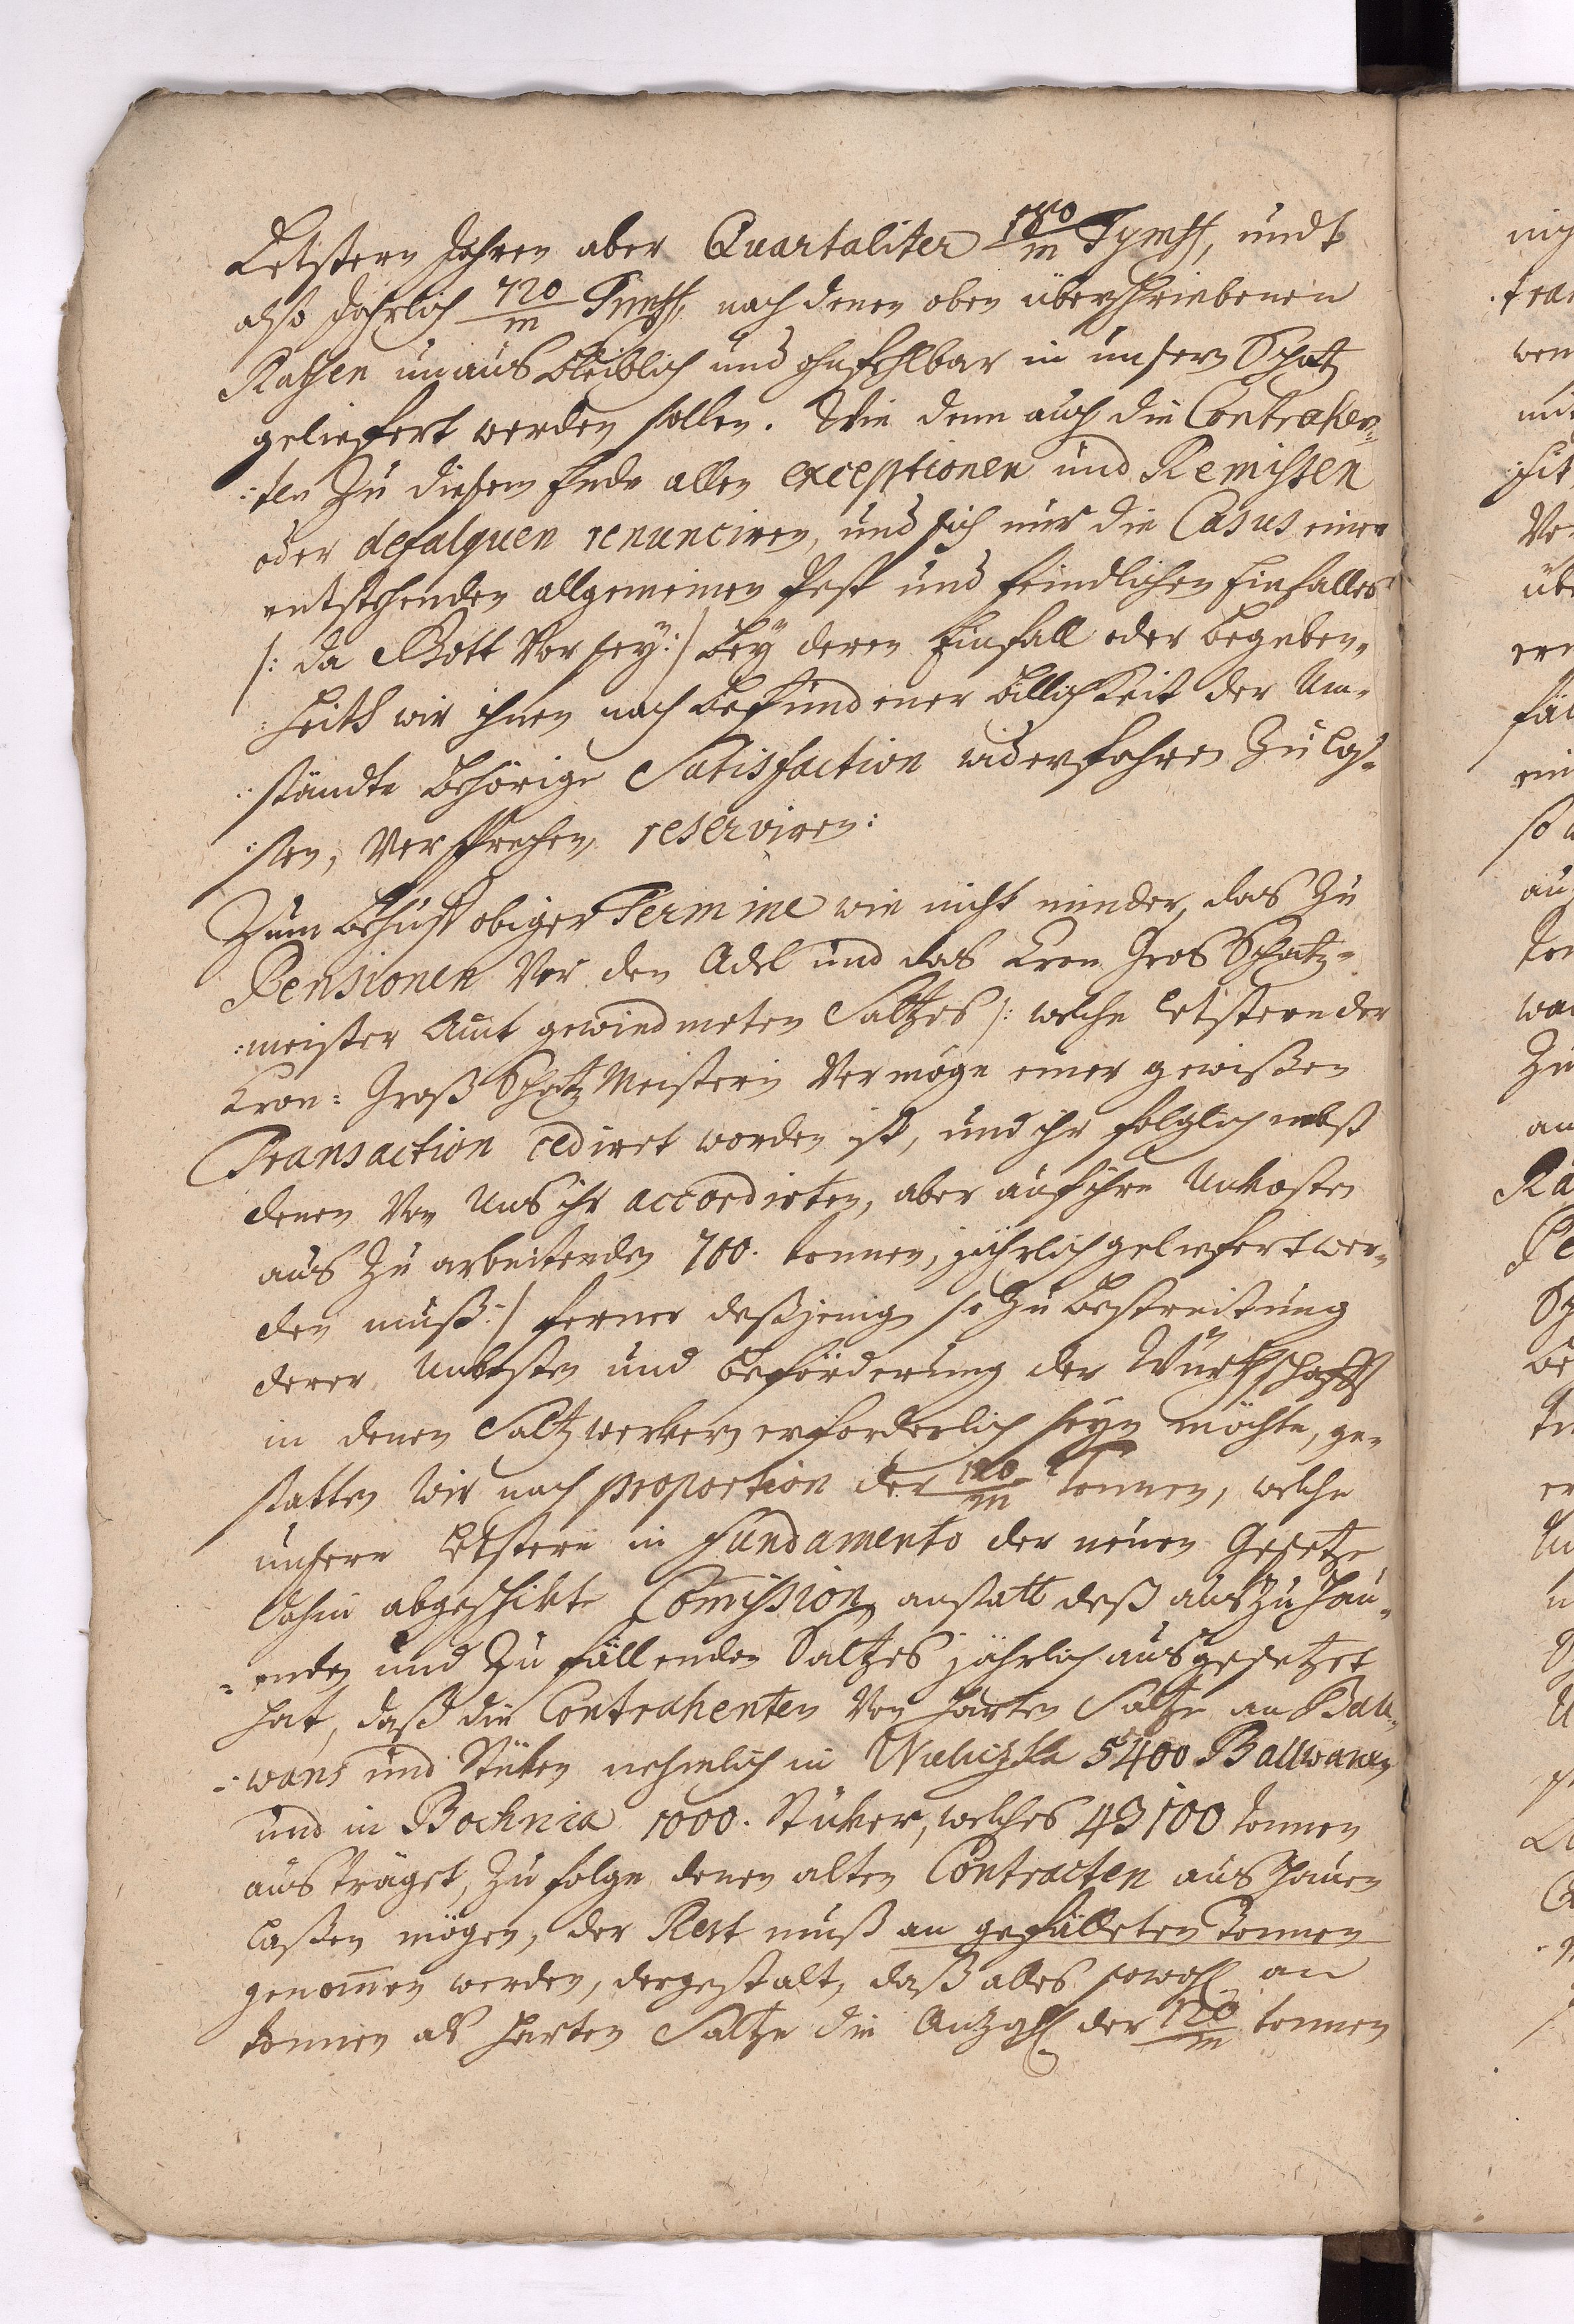 Letstern Jahren aber Quartaliter 180/m Tympff, undt
also Jährlich 720/m Tympff, nach denen oben überschriebenen
Rathen unausbleiblich und ohnfehlbar in unsern Schatz
geliefert werden sollen. Wie denn auch die Contrahen=
:ten Zu diesem Ende allen exceptionen und Remissen
oder defalquen renunciren, und sich nur die Casus einer
entstehenden allgemeinen Pest und feindlichen Einfalles
/: da Gott Vor sey :/ bey deren Einfall oder begeben=
:heith wir ihnen nach befundener billichkeit der Um=
:ständte behörige Satisfaction widerfahren Zu laß=
:sen, Versprechen, reserviren:
Zum behuff obiger Termine wie nicht minder, das Zu
Pensionen Vor den Adel und das Cron Gros Schatz=
:meister Amt gewiedmeten Saltzes /: welche letstere der
Cron= Groß Schatz Meisterin Vermöge einer gewißen
Transaction cediret worden ist, und ihr folglich nebst
denen Von Uns ihr accordirten, aber auf ihre Unkosten
aus Zu arbeitenden 700. tonnen, jährlich geliefert wer=
den muß :/ ferner deßjenig so Zu bestreitung
derer Unkosten und beförderung der Würthschafft
in denen Saltzwerkern erforderlich seyn möchte, ge=
statten Wir nach proportion der 120/m tonnen, welche
unsere letstere in Fundamento der neuen Gesetze
dahin abgeschikte Comission, anstatt deß aus Zu hau=
=enden und Zu füllenden Saltzes jährlich ausgesetzet
hat, daß die Contrahenten Von harten Saltze an Ball=
=wans und Stüken nehmlich in Wieliczka 5400 Ballwanen
und in Bochnia 1000. Stüker, welches 43100 tonnen
austräget, Zu folge denen alten Contracten aushauen
laßen mögen, der Rest muß an gefülleten Tonnen
genommen werden, dergestalt, daß alles sowohl an
tonnen als harten Saltze die Anzahl der 120/m tonnen